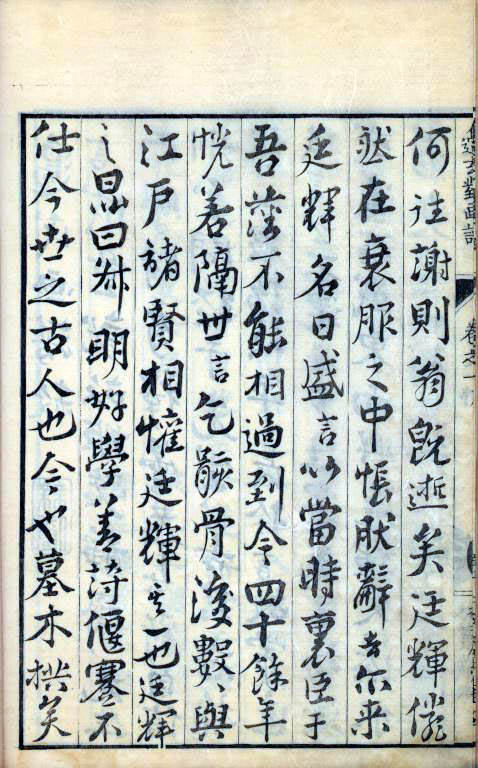 何往謝則翁既逝矣廷輝儼
然在衰服之中悵肰辭去尔来
廷輝名日盛言以當時裏臣于
吾藩不能相過到今四十餘年
恍若隔世言乞骸骨後數〻與
江戸諸賢相懽廷輝其一也廷輝
之昆曰叔明好學善詩偃蹇不
仕今世之古人也今也墓木拱矣
卷之一